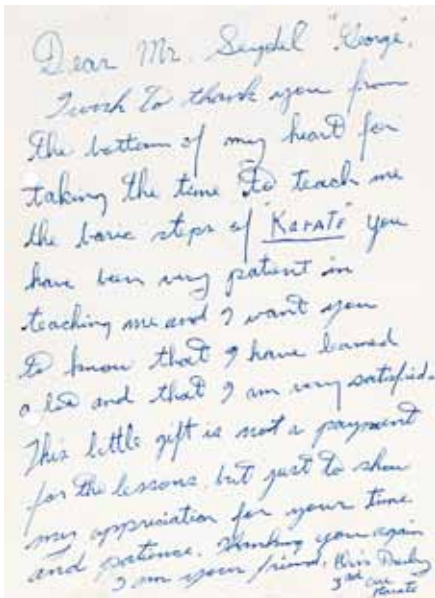 Dear Mr. Seydel "George",
I wish to thank you from
the bottom of my heart for
taking the time to teach me
the basic steps of "KARATE" you
have been very patient in
teaching me and I want you
to know that I have learned
a lot and that I am very satisfied.
This little gift is not a payment
for the lessons, but just to show
my appreciation for your time
and patience. Thanking you again
I am your friend,
3rd
Karate